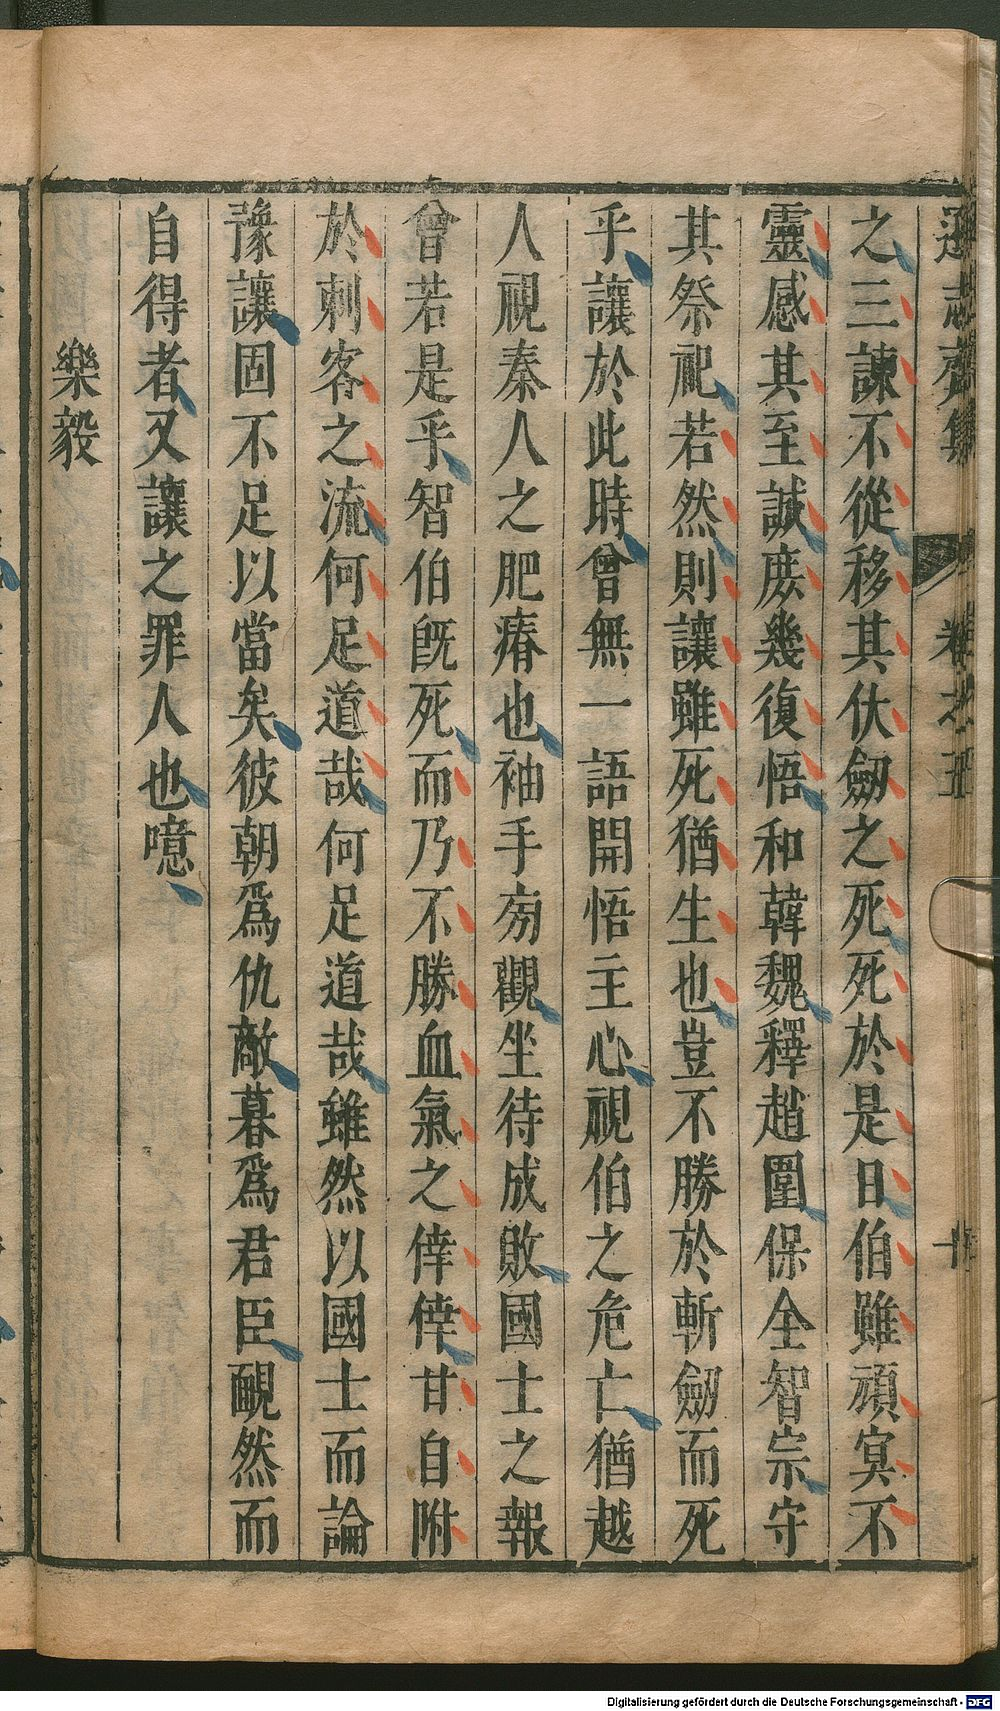 遜志齋集 卷之五 十
之三諫不從移其伏劒之死死於是日伯雖頑冥不
靈感其至誠庻幾復悟和韓魏釋趙圍保全智宗守
其祭祀若然則讓雖死猶生也豈不勝於斬劒而死
乎讓於此時曾無一語開悟主心視伯之危亡猶越
人視秦人之肥瘠也袖手㫄觀坐待成敗國士之報
曾若是乎智伯旣死而乃不勝血氣之倖倖甘自附
於刺客之流何足道哉何足道哉雖然以國士而論
豫讓固不足以當矣彼朝爲仇敵暮爲君臣靦然而
自得者又讓之罪人也噫
樂毅
Digitalisierung gefördert durch die Deutsche Forschungsgemeinschaft - DFG